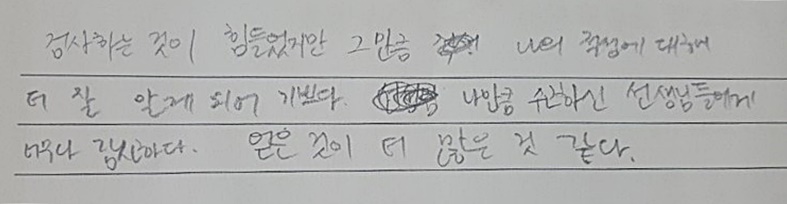 검사하는 것이 힘들었지만 그만큼 나의 적성에 대해
더 잘 알게 되어 기쁘다. 나만큼 수고하신 선생님들에게
너무나 감사하다. 얻은 것이 더 많은 것 같다.